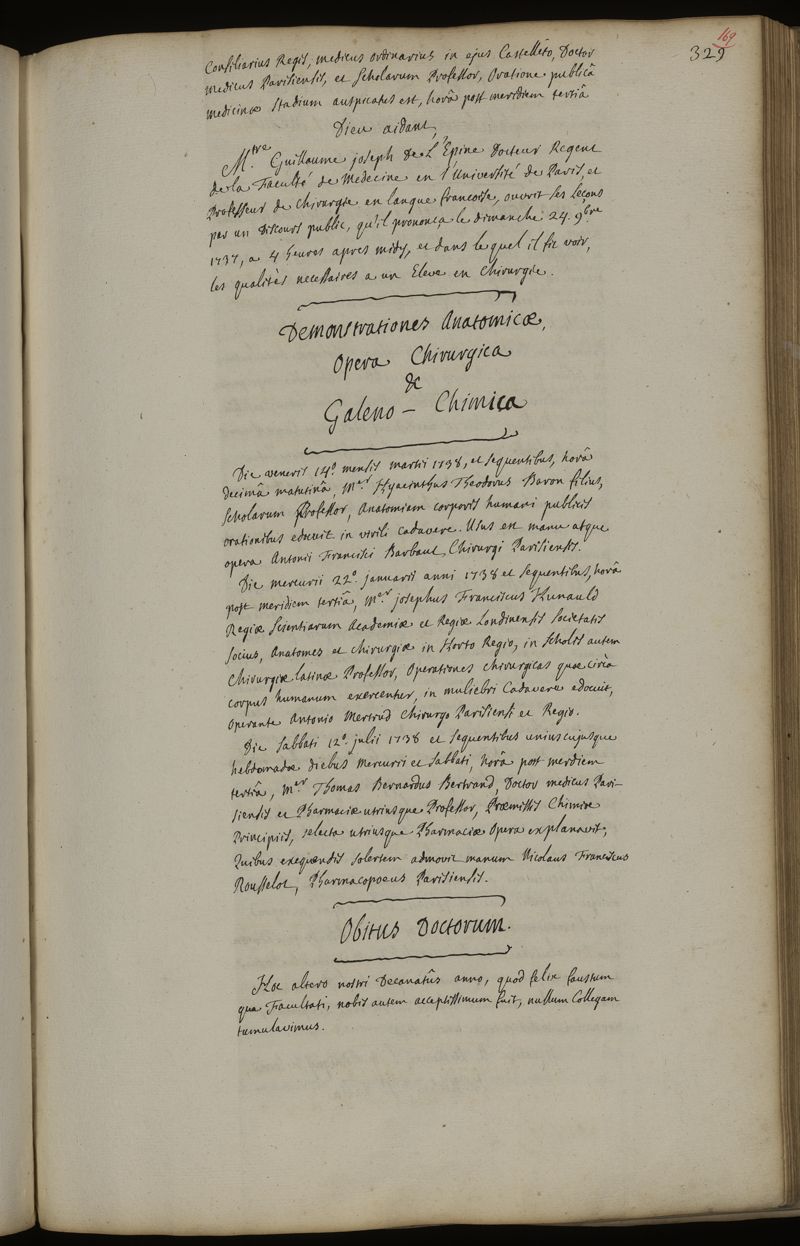 169
329
Consiliarius Regis, medicus ordinarius in ejus Castelleto, Doctor
medicus Parisiensis, et Scholarum Professor, Oratione publicâ
medicinæ Stadium auspicatus est, horâ post meridiem tertiâ
Dieu aidant,
M.tre Guillaume joseph De L'Epine Docteur Regent
de la Faculté de Medecine en l'Université de Paris, et
Professeur de Chirurgie en langue francoise, ouvrit ses Leçons
par un Discours public, qu'il prononça le dimanche 24. 9bre
1737, a 4 heures apres midy, et dans le quel il fit voir,
les qualités necessaires a un Eleve en Chirurgie.
Demonstrationes Anatomicæ,
Opera Chirurgica
&
Galeno - Chimica
Die veneris 14.° mensis martii 1738, et sequentibus, horâ
decimâ matutinâ, M.er Hyacinthus Theodorus Baron filius,
Scholarum Professor, Anatomiam corporis humani publicis
orationibus edocuit in virili cadavere. Usus est manu atque
opera Antonii Francisci Barbaut, Chirurgi Parisiensis.
Die mercurii 22.° januarii anni 1738 et sequentibus, horâ
post meridiem tertiâ, M.er josephus Franciscus Hunauld
Regiæ Scientiarum Academiæ et Regiæ Londinensis Societatis
Socius, Anatomes et Chirurgiæ in Horto Regio, in Scholis autem
Chirurgiæ latinæ Professor, Operationes chirurgicas quæ circà
corpus humanum exercentur, in muliebri Cadavere edocuit,
Operante Antonio Mertrud Chirurgo Parisiensi et Regio.
Die Sabbati 12.° julii 1738 et sequentibus uniuscujusque
hebdomadæ diebus Mercurii et Sabbati, horâ post merdiem
tertiâ, M.er Thomas Bernardus Bertrand, Doctor medicus Pari-
siensis et Pharmaciæ utriusque Professor, Præmissis Chimiæ
Principiis, selecta utriusque Pharmaciæ Opera explanavit,
Quibus exequendis solertem admovit manum Nicolaus Franciscus
Rousselot, Pharmacopoeus Parisiensis.
Obitus Doctorum.
Hoc altero nostri Decanatûs anno, quod felix faustum
que Facultati, nobis autem acceptissimum fuit, nullum Collegam
tumulavimus.